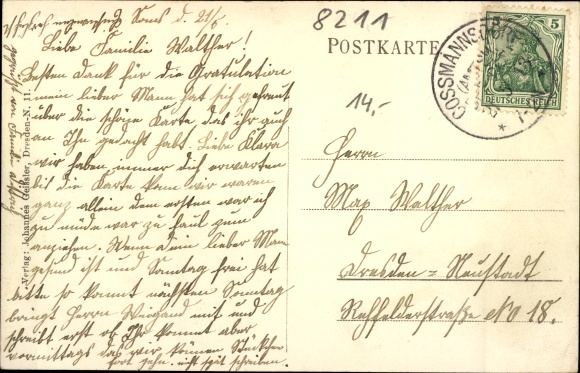 Sons d. 21/6
Liebe Familie Walther!
Besten Dank für die Gratulation
mein lieber Mann hat sich gefreut
über die schöne Karte das ihr auch
an Ihn gedacht habt. Liebe Klara
wir haben immer dich erwarten
bis die Karte kam wir waren
ganz allein dem ersten war ich
zu müde war zu faul zum
anziehen. Wenn dein lieber Mann
gesund ist und Sonntag frei hat
bitte so kommt nächsten Sonntag
bringt Herrn Weigand mit und
schreibt erst ob Ihr kommt aber
vormittags das wir können Stückchen
fort gehn. nicht spät schreiben.
Verlag: Johannes Geissler, Dresden-N. 11.
8211
POSTKARTE
14,-
5
DEUTSCHES REICH
COSSMANNSDORF
Herrn
Max Walther
Dresden=Neustadt
Rehfelderstraße No 18.